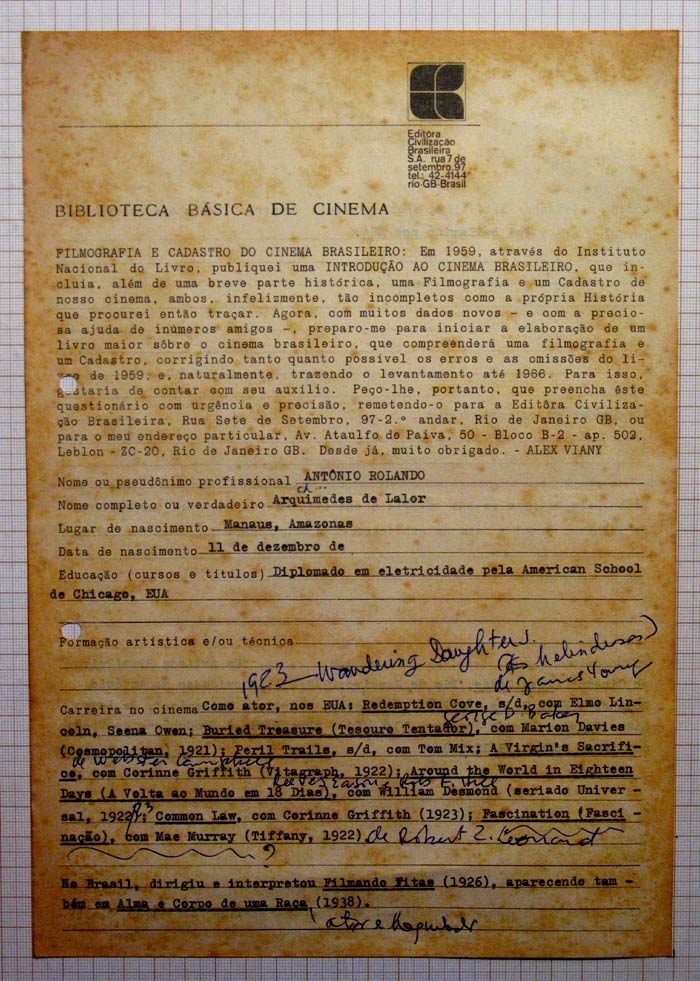 Editôra
Civilização
Brasileira
S.A. rua 7 de
setembro, 97
tel.: 42-4144
rio·GB·Brasil
BIBLIOTECA BÁSICA DE CINEMA
FILMOGRAFIA E CADASTRO DO CINEMA BRASILEIRO: Em 1959, através do Instituto
Nacional do Livro, publiquei uma INTRODUÇÃO AO CINEMA BRASILEIRO, que in-
cluia, além de uma breve parte histórica, uma Filmografia e um Cadastro de
nosso cinema, ambos, infelizmente, tão incompletos como a própria História
que procurei então traçar. Agora, com muitos dados novos - e com a precio-
sa ajuda de inúmeros amigos -, preparo-me para iniciar a elaboração de um
livro maior sôbre o cinema brasileiro, que compreenderá uma filmografia e
um Cadastro, corrigindo tanto quanto possível os erros e as omissões do li-
vro de 1959 e, naturalmente, trazendo o levantamento até 1966. Para isso,
gostaria de contar com seu auxilio. Peço-lhe, portanto, que preencha êste
questionário com urgência e precisão, remetendo-o para a Editôra Civiliza-
ção Brasileira, Rua Sete de Setembro, 97-2.º andar, Rio de Janeiro GB, ou
para o meu endereço particular, Av. Ataulfo de Paiva, 50 - Bloco B-2 - ap. 502,
Leblon - ZC-20, Rio de Janeiro GB. Desde já, muito obrigado. - ALEX VIANY
Nome ou pseudônimo profissional ANTÔNIO ROLANDO
ch...
Nome completo ou verdadeiro Arquimedes de Lalor
Lugar de nascimento Manaus, Amazonas
Data de nascimento 11 de dezembro de
Educação (cursos e títulos) Diplomado em eletricidade pela American School
de Chicago, EUA
Formação artística e/ou técnica
1923 Wandering Daughters
(As Melindrosas)
de James Young
Carreira no cinema Como ator, nos EUA: Redemption Cove, s/d, com Elmo Lin-
George D. Baker
coln, Seena Owen; Buried Treasure (Tesouro Tentador), com Marion Davies
(Cosmopolitan, 1921); Peril Trails, s/d, com Tom Mix; A Virgin's Sacrifi-
de Webster Campbell
ce, com Corinne Griffith (Vitagraph, 1922); Around the World in Eighteen
Reeves Eason
Days (A Volta ao Mundo em 18 Dias), com William Desmond (seriado Univer-
sal, 1922); Common Law, com Corinne Griffith (1923); Fascination (Fasci-
nação), com Mae Murray (Tiffany, 1922) de Robert Z. Leonard
?
No Brasil, dirigiu e interpretou Filmando Fitas (1926), aparecendo tam-
bém em Alma e Corpo de uma Raça (1938).
ator e